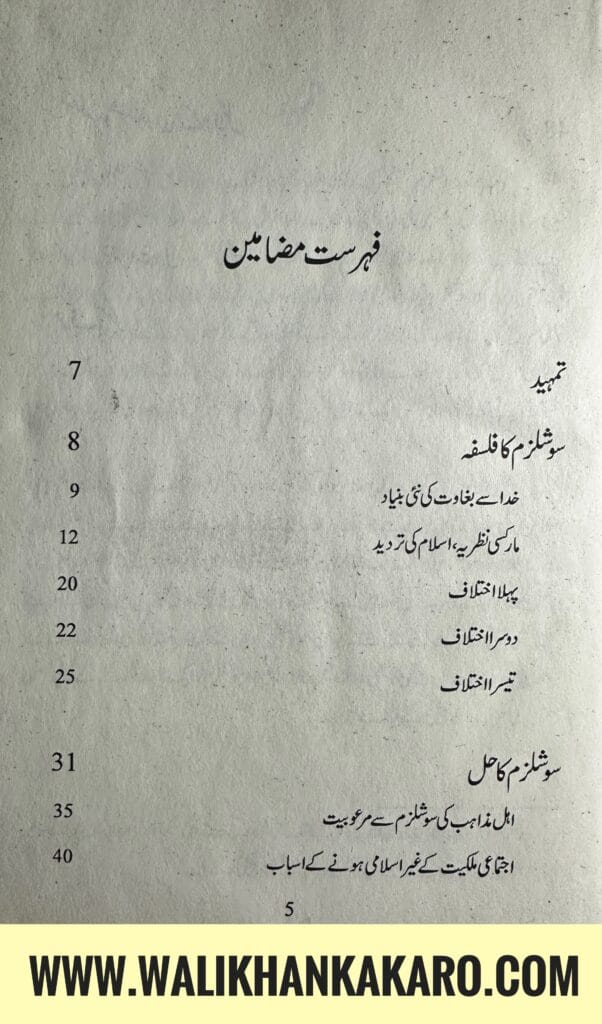 فہرست مضامین
تمہید 7
سوشلزم کا فلسفہ 8
خدا سے بغاوت کی نئی بنیاد 9
مارکسی نظریہ، اسلام کی تردید 12
پہلا اختلاف 20
دوسرا اختلاف 22
تیسرا اختلاف 25
سوشلزم کا حل 31
اہل مذاہب کی سوشلزم سے مرعوبیت 35
اجتماعی ملکیت کے غیر اسلامی ہونے کے اسباب 40
5
WWW.WALIKHANKAKARO.COM